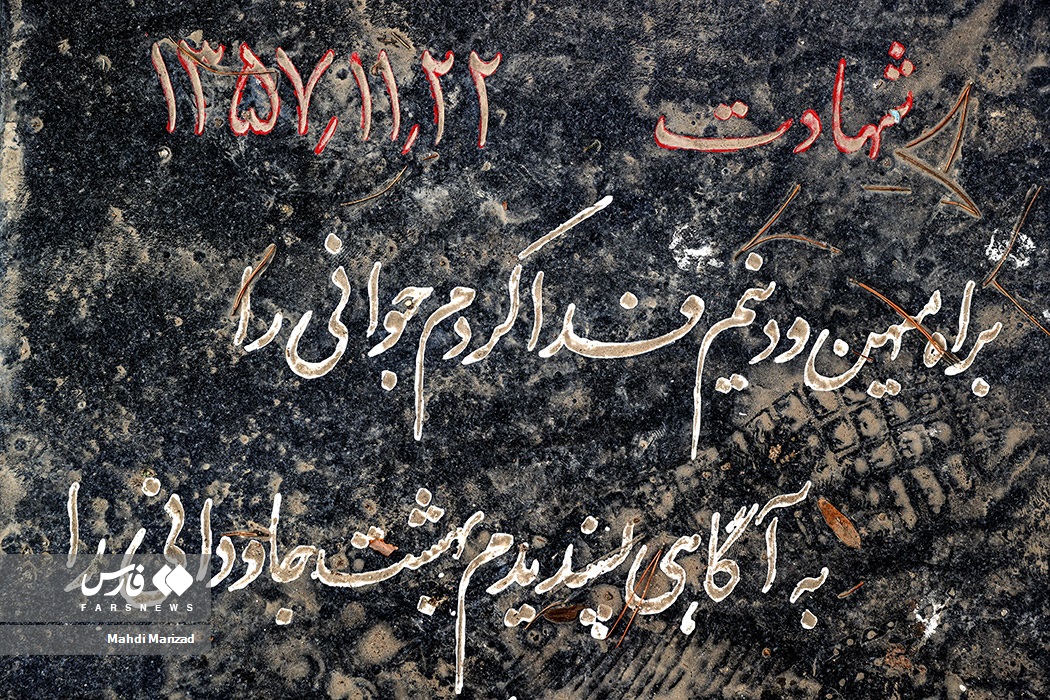 شهادت ۱۳۵۷,۱۱,۲۲
براه میهن و دینم فدا کردم جوانی را
به آگاهی پسندیدم بهشت جاودانی را
فارس
FARSNEWS
Mahdi Marizad